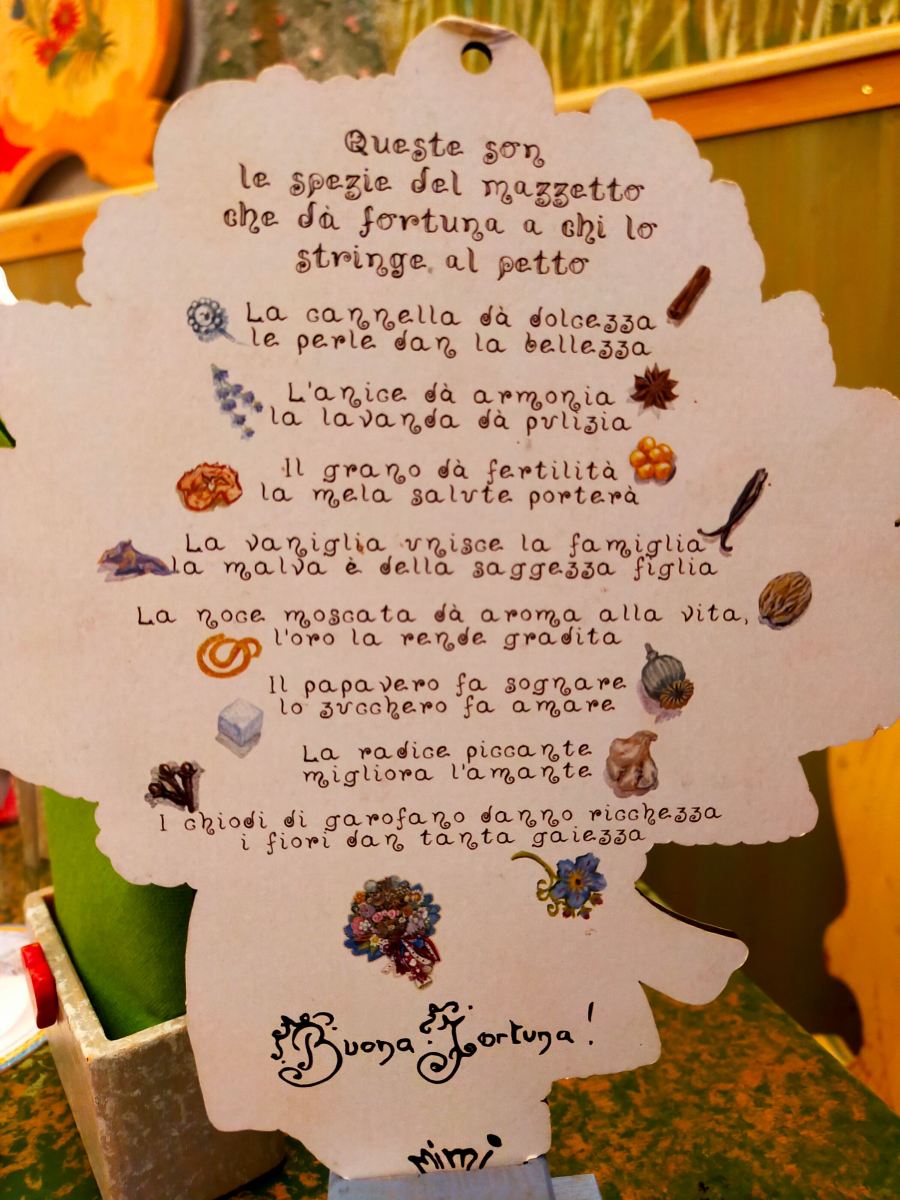 Queste son
le spezie del mazzetto
che dà fortuna a chi lo
stringe al petto
La cannella dà dolcezza
le perle dan la bellezza
L'anice dà armonia
la lavanda dà pulizia
Il grano dà fertilità
la mela salute porterà
La vaniglia unisce la famiglia
la malva è della saggezza figlia
La noce moscata dà aroma alla vita,
l'oro la rende gradita
Il papavero fa sognare
lo zucchero fa amare
La radice piccante
migliora l'amante
I chiodi di garofano danno ricchezza
i fiori dan tanta gaiezza
Buona Fortuna!
Mimi